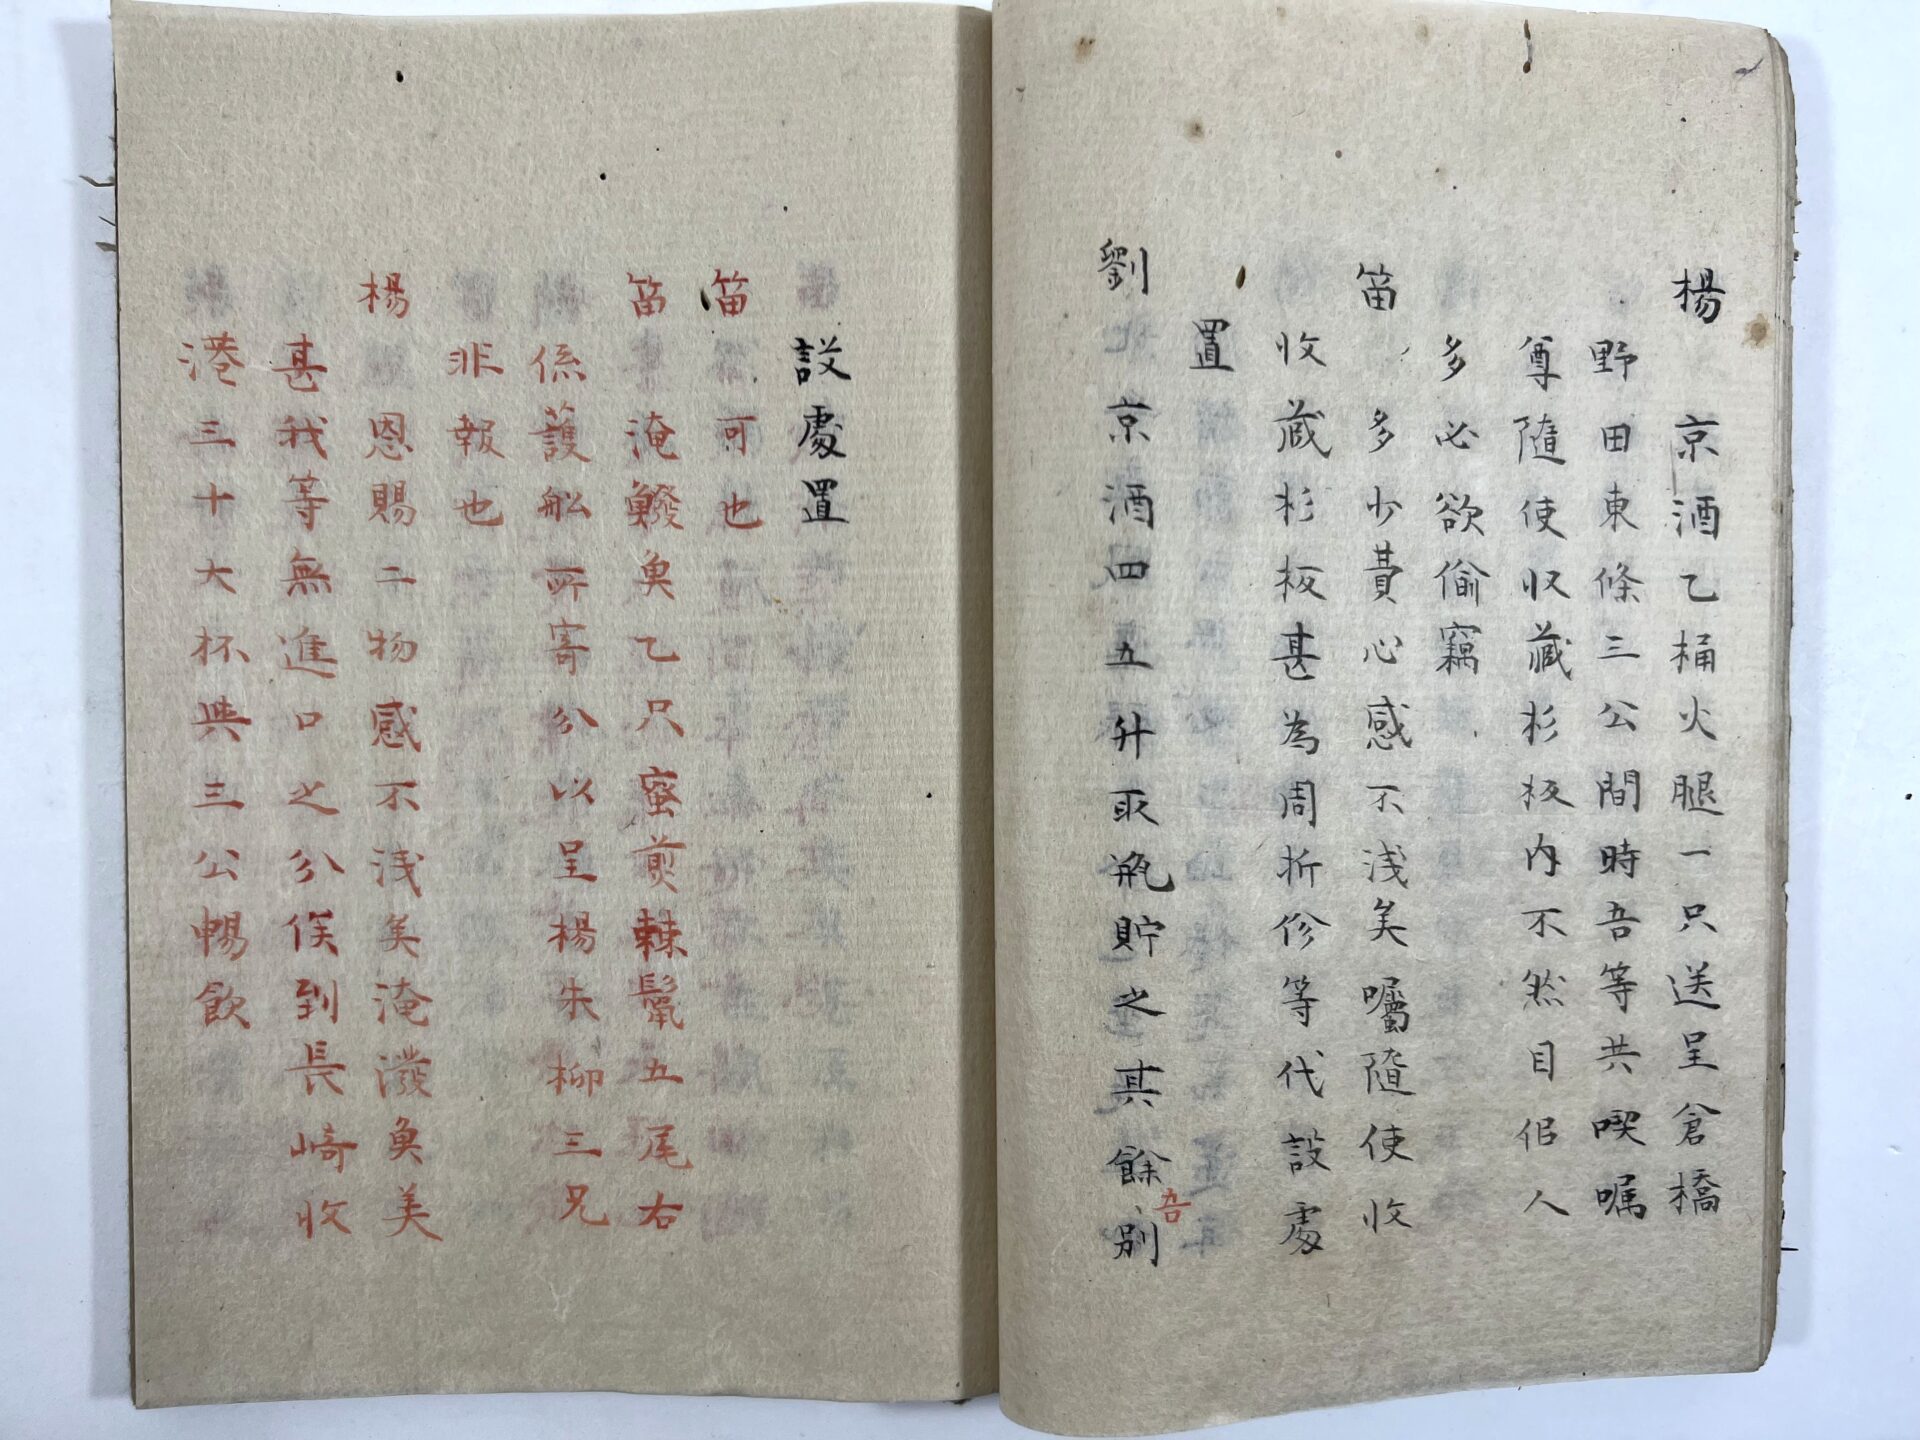 楊 京酒乙桶火腿一只送呈倉橋
野田東條三公間時吾等共喫囑
尊隨使収藏杉板内不然目侶人
多必欲偷竊
笛 多少費心感不浅矣囑隨使收
收蔵杉板甚為周折俻等代設處
置
劉 京酒四五升取瓶貯之其餘吾別
設處置
笛 可也
笛 淹鱍魚乙尺蜜煎棘鬣五尾右
係護舩所寄分以呈楊朱柳三兄
非報也
楊 恩賜二物感不浅矣淹潑魚美
甚我等無進口之分俟到長崎收
港三十大杯與三公暢飲